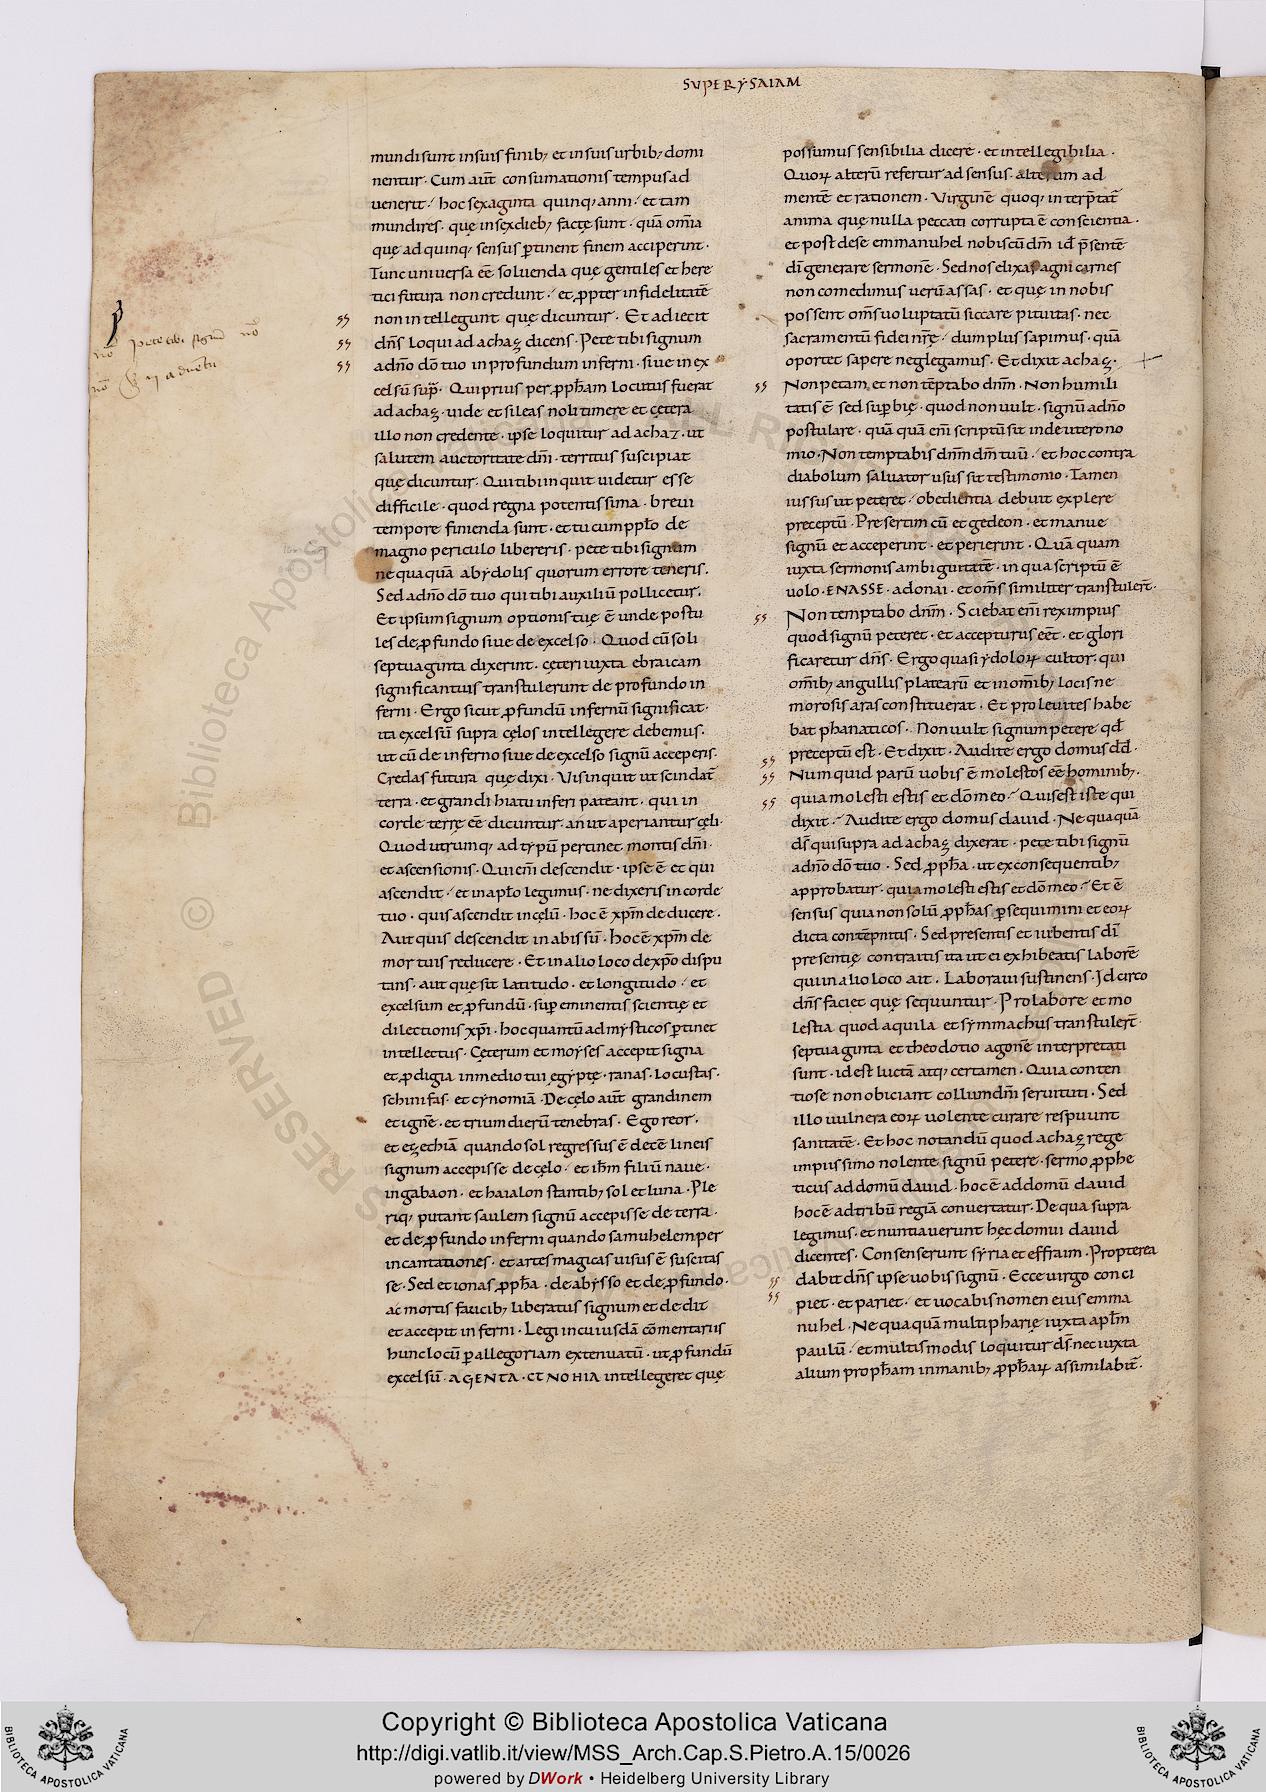 SUPER YSAIAM
mundi sunt in suis finib; et in suis urbib; domi
nentur. Cum aut̄ consumationis tempus ad
uenerit. hoc sexaginta quinq; anni. et tam
mundi res. quę in sex dieb; factę sunt. quā om̄ia
quę ad quinq; sensus ꝑtinent finem acciperint.
Tunc uniuersa eē soluenda quę gentiles et here
tici futura non credunt. et ꝓpter infidelitatē
non intellegunt quę dicuntur. Et adiecit
dn̄s loqui ad achaz dicens. Pete tibi signum
a dn̄o dō tuo in profundum inferni. siue in ex
celsū sup̄. Qui prius per ꝓph̄am locutus fuerat
ad achaz. uide et sileas noli timere et cętera
illo non credente. ipse loquitur ad achaz. ut
salutem auctoritate dn̄i. territus suscipiat
quę dicuntur. Qui tibi inquit uidetur esse
difficile. quod regna potentissima. breui
tempore finienda sunt. et tu cum pp̄lo de
magno periculo libereris. pete tibi signum
ne quaquā ab ydolis quorum errore teneris.
Sed a dn̄o dō tuo qui tibi auxiliū pollicetur.
Et ipsum signum optionis tuę ē unde postu
les de ꝓfundo siue de excelso. Quod cū soli
septuaginta dixerint. cęteri iuxta ebraicam
significantius transtulerunt de profundo in
ferni. Ergo sicut ꝓfundū infernū significat.
ita excelsū supra cęlos intellegere debemus.
ut cū de inferno siue de excelso signū acceperis.
Credas futura quę dixi. Vis inquit ut scindat̄
terra. et grandi hiatu inferi pateant. qui in
corde terrę eē dicuntur. an ut aperiantur cęli.
Quod utrunq; ad typū pertinet. mortis dn̄i.
et ascensionis. Qui eni̅ descendit. ipse ē et qui
ascendit. et in apl̄o legimus. ne dixeris in corde
tuo. quis ascendit in cęlū. hoc ē xp̄m deducere.
Aut quis descendit in abissū. hoc ē xp̄m de
mortuis reducere. Et in alio loco de xp̄o dispu
tans. aut quę sit latitudo. et longitudo. et
excelsum et ꝓfundū. suꝑ eminentis scientię et
dilectionis xp̄i. hoc quantū ad mysticos ꝑtinet
intellectus. Cęterum et moyses accepit signa
et ꝓdigia in medio tui egyptę. ranas. locustas.
schinifas. et cynomiā. De cęlo aut̄ grandinem
et ignē. et trium dierū tenebras. Ego reor.
et ezechiā quando sol regressus ē decē lineis
signum accepisse de cęlo. et ih̄m filiū naue.
in gabaon. et haialon stantib; sol et luna. Ple
riq; putant saulem signū accepisse de terra.
et de ꝓfundo inferni quando samuhelem per
incantationes. et artes magicas uisus ē suscitas
se. Sed et ionas ꝓph̄a. de abysso et de ꝓfundo.
ac mortis faucib; liberatus signum et dedit
et accepit inferni. Legi in cuiusdā cōmentariis
hunc locū ꝑ allegoriam extenuatū. ut ꝓfundū
excelsū. AGENTA. CT NOHIA intellegeret quę
possumus sensibilia dicere. et intellegibilia.
Quoꝝ alterū refertur ad sensus. alterum ad
mentē et rationem. Virginē quoq; interp̄tat̄
anima quę nulla peccati corrupta ē conscientia.
et post de se emmanuhel nobiscū dm̄ id p̄sentē
dī generare sermonē. Sed nos elixas agni carnes
non comedimus uerū assas. et quę in nobis
possent om̄s uoluptatū siccare pituitas. nec
sacramentū fidei nr̄ę. dum plus sapimus. quā
oportet sapere neglegamus. Et dixit achaz.
Non petam et non tēptabo dn̄m. Non humili
tatis ē sed suꝑbię. quod non uult. signū a dn̄o
postulare. quā quā eni̅ scriptū sit in deuterono
mio. Non temptabis dn̄m dm̄ tuū. et hoc contra
diabolum saluator usus sit testimonio. Tamen
iussus ut peteret. obedientia debuit explere
preceptū. Presertim cū et gedeon. et manue
signū et acceperint. et petierint. Quā quam
iuxta sermonis ambiguitatē. in qua scriptū ē
uolo. ENASSE. adonai. et om̄s similiter transtuler̄.
Non temptabo dn̄m. Sciebat eni̅ rex impius
quod signū peteret. et accepturus eēt. et glori
ficaretur dn̄s. Ergo quasi ydoloꝝ cultor. qui
om̄ib; angullis platearū et in om̄ib; locis ne
morosis aras constituerat. Et pro leuites habe
bat phanaticos. Non uult signum petere qd̄
preceptū est. Et dixit. Audite ergo domus dd̄.
Num quid parū uobis ē molestos eē hominib;.
quia molesti estis et dō meo. Quis est iste qui
dixit. Audite ergo domus dauid. Ne quaquā
ds̄ qui supra ad achaz dixerat. pete tibi signū
a dn̄o dō tuo. Sed ꝓph̄a. ut ex consequentib;
approbatur. quia molesti estis et dō meo. Et ē
sensus quia non solū ꝓph̄as ꝑsequimini et eoꝝ
dicta contēpnitis. Sed presentis et iubentis dī
presentię contraitis ita ut ei exhibeatis laborē
qui in alio loco ait. Laboraui sustinens. Id circo
dn̄s faciet quę sequuntur. Pro labore et mo
lestia quod aquila et symmachus transtuler̄.
septuaginta et theodotio agonē interpretati
sunt. id est luctā atq; certamen. Quia conten
tiose non obiciant collum dn̄i seruituti. Sed
illo uulnera eoꝝ uolente curare respuunt
sanitatē. Et hoc notandū quod achaz rege
impiissimo nolente signū petere. sermo ꝓphe
ticus ad domū dauid. hoc ē ad domū dauid
hoc ē ad tribū regiā conuertatur. De qua supra
legimus. et nuntiauerunt hęc domui dauid
dicentes. Consenserunt syria et effraim. Propterea
dabit dn̄s ipse uobis signū. Ecce uirgo conci
piet. et pariet. et uocabis nomen eius emma
nuhel. Ne quaquā multipharię iuxta apl̄m
paulū. et multis modis loquitur ds̄. nec iuxta
alium proph̄am in manib; ꝓph̄aꝝ assimilabit̄.
Copyright © Biblioteca Apostolica Vaticana
http://digi.vatlib.it/view/MSS_Arch.Cap.S.Pietro.A.15/0026
powered by DWork • Heidelberg University Library